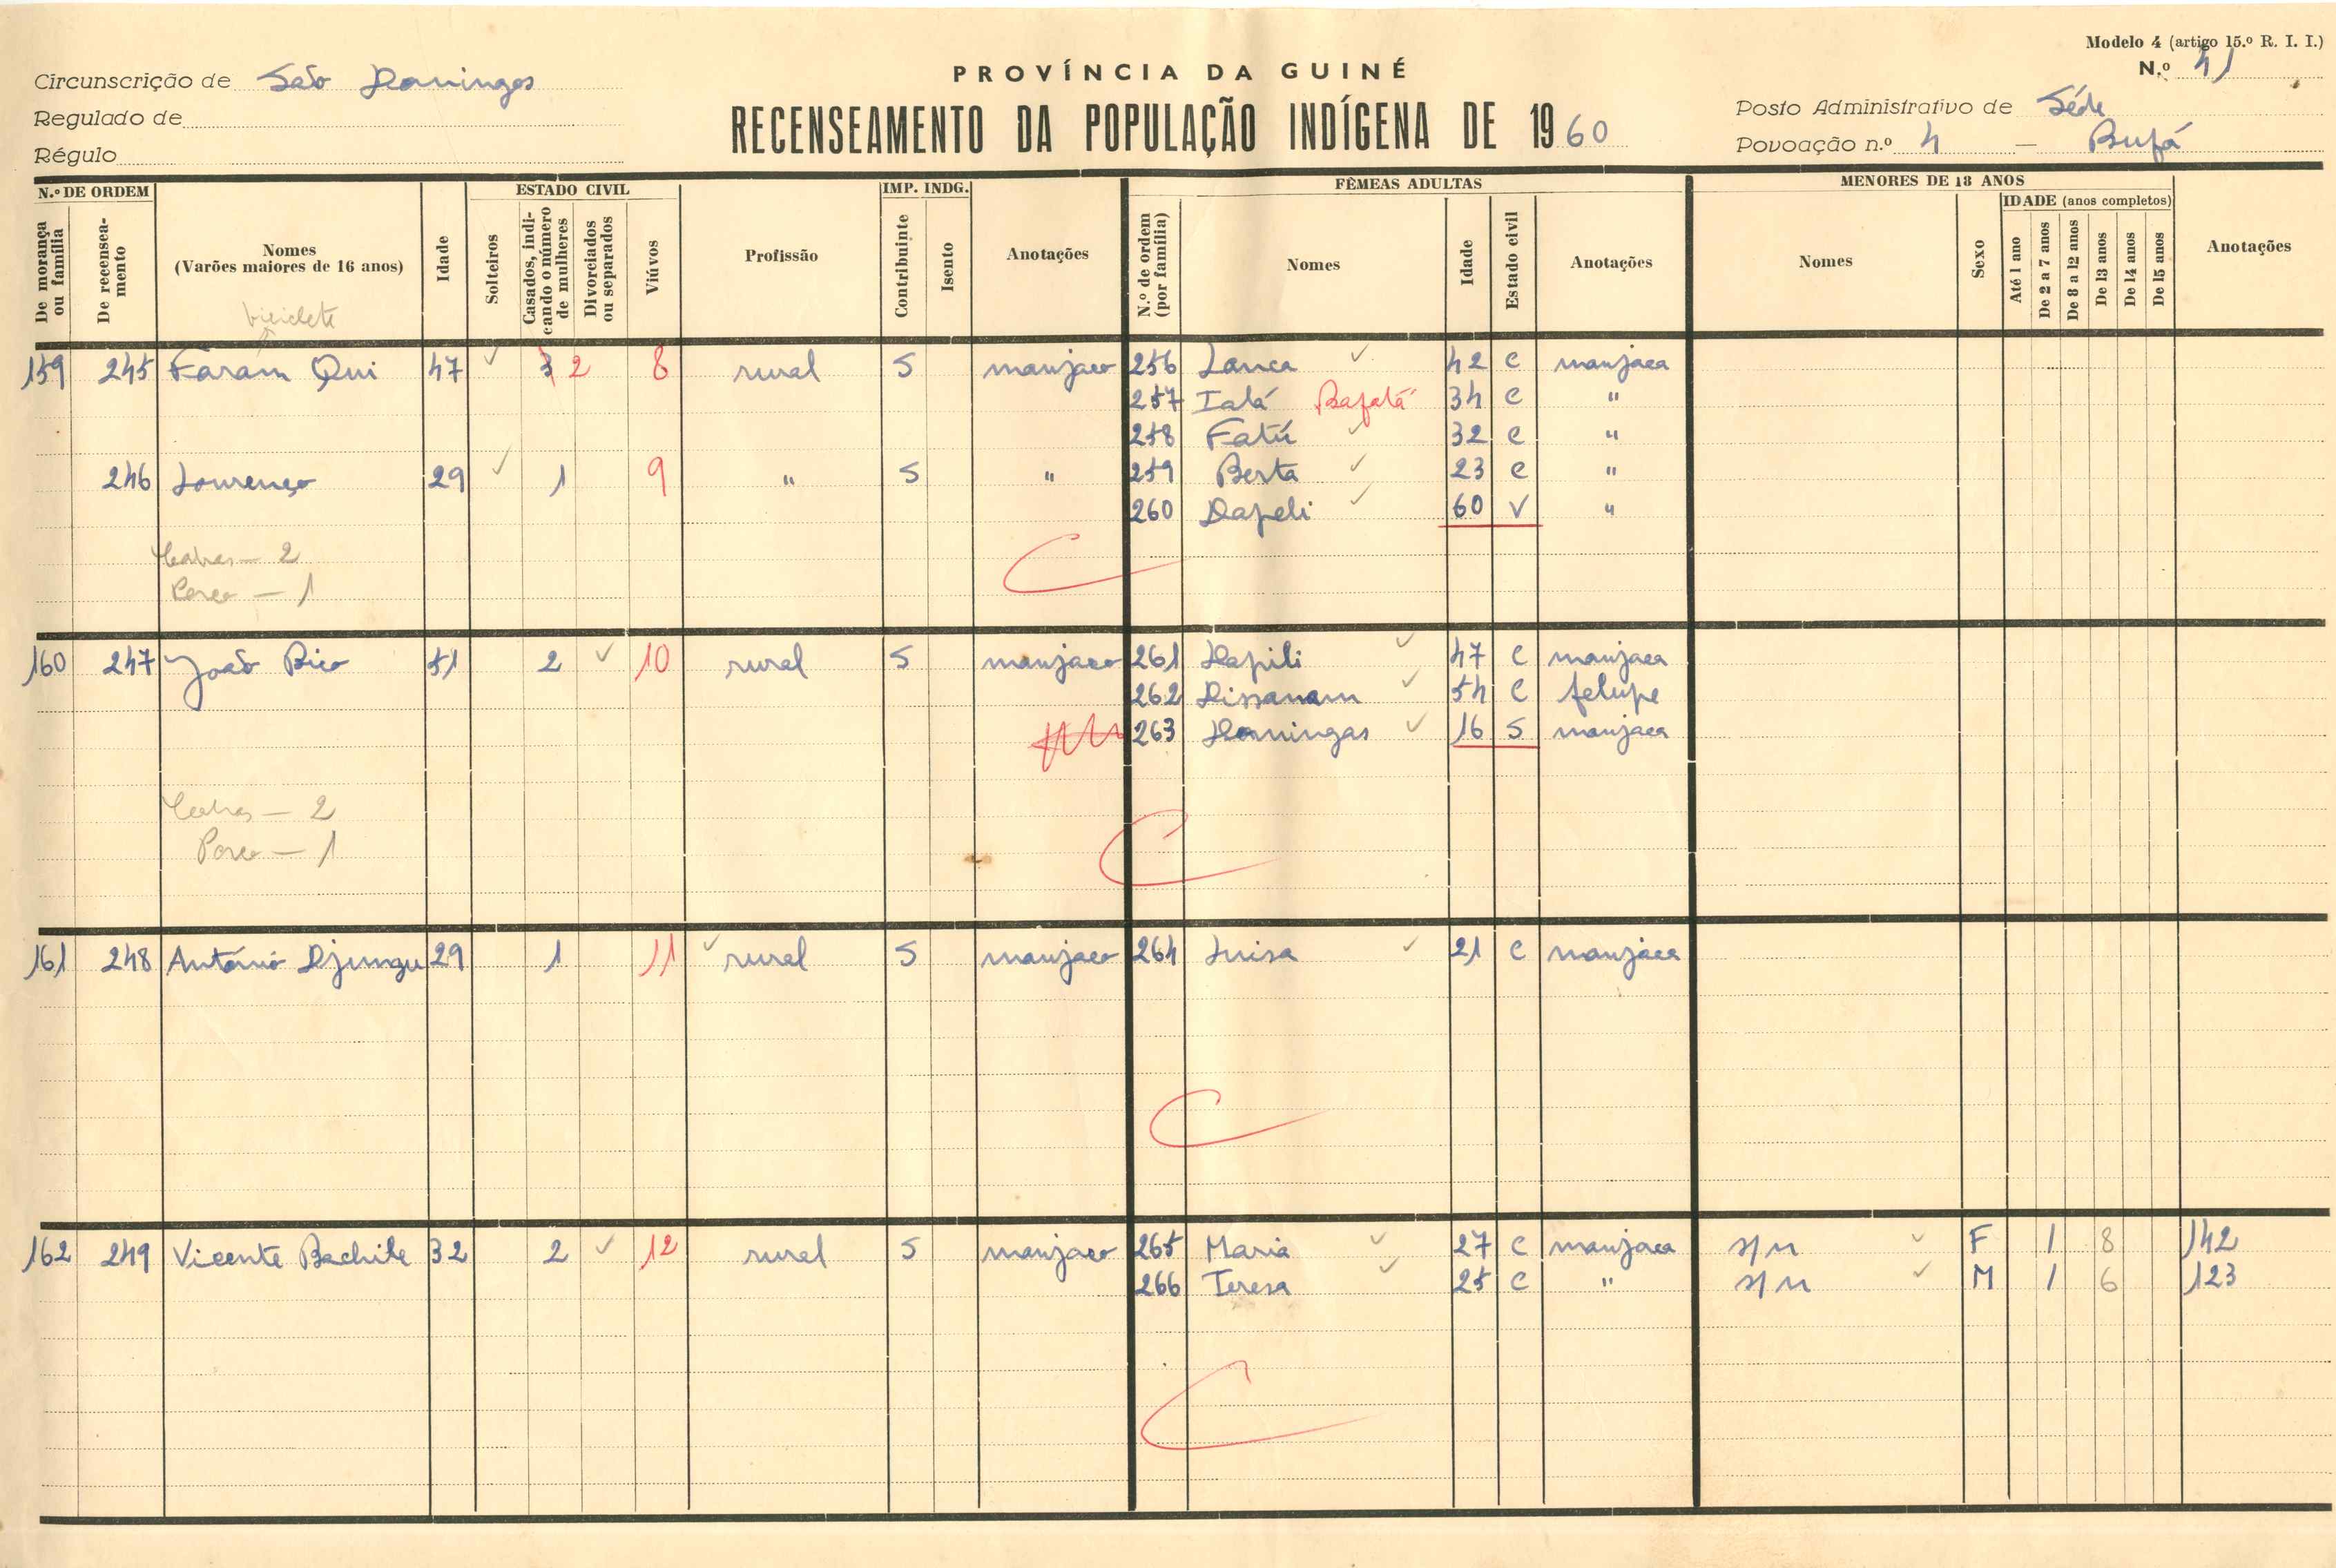 Modelo 4 (artigo 15.º R. I. I.)
PROVÍNCIA DA GUINÉ
N.º 41
Circunscrição de São Domingos
RECENSEAMENTO DA POPULAÇÃO INDÍGENA DE 1960
Posto Administrativo de Séde
Regulado de
Povoação n.º 4 — Bufá
Régulo
N.º DE ORDEM ESTADO CIVIL IMP. INDG. FÊMEAS ADULTAS MENORES DE 18 ANOS
De morança ou família De recenseamento Nomes (Varões maiores de 16 anos) Idade Solteiros Casados, indicando o número de mulheres Divorciados ou separados Viúvos Profissão Contribuinte Isento Anotações N.º de ordem (por família) Nomes Idade Estado civil Anotações Nomes Sexo IDADE (anos completos) Até 1 ano De 2 a 7 anos De 8 a 12 anos De 13 anos De 14 anos De 15 anos Anotações
biciclete
159 245 Faram Qui 47 3 2 8 rural S manjaco 256 Lanca 42 C manjaca
257 Ialá Bafatá 34 C "
258 Fatú 32 C "
246 Lourenço 29 1 9 " S " 259 Berta 23 C "
260 Dapeli 60 V "
Cabras — 2
Porco — 1
160 247 João Bico 51 2 10 rural S manjaco 261 Hapili 47 C manjaca
262 Dissanam 54 C felupe
263 Domingas 16 S manjaca
Cabras — 2
Porco — 1
161 248 António Djungu 29 1 11 rural S manjaco 264 Luisa 21 C manjaca
162 249 Vicente Bachile 32 2 12 rural S manjaco 265 Maria 27 C manjaca s/n F 1 8 142
266 Teresa 25 C " s/n M 1 6 123